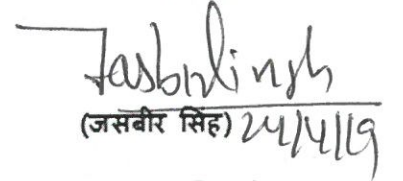 Jasbir Singh
(जसबीर सिंह) 24/4/19